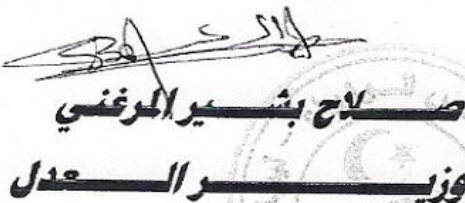 صلاح بشير المرغني
وزير العدل